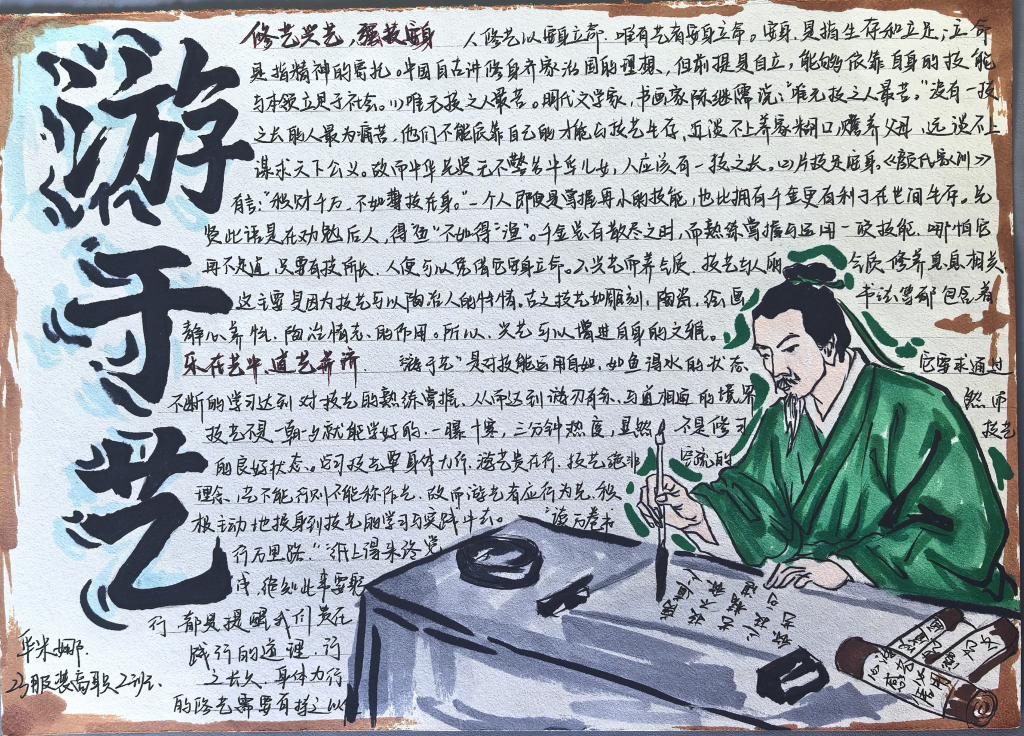 游于艺
修艺兴艺，强技安身
人修艺以安身立命。唯有艺者安身立命。安身，是指生存和立足；立命
是指精神的寄托。中国自古讲修身齐家治国的理想，但前提是自立，能够依靠自身的技能
与本领立足于社会。(1)唯无技之人最苦。明代文学家，书画家陈继儒说："唯无技之人最苦，"没有一技
之长的人最为痛苦，他们不能依靠自己的才能与技艺生存，近谈不上养家糊口，赡养父母，远谈不上
谋求天下公义。故而中华民族无不警名华夏儿女，人应该有一技之长。(2)片技足应身。《颜氏家训》
有言："积财千万，不如薄技在身。"一个人即便是掌握再小的技能，也比拥有千金更有利于在世间生存。先
贤此语是在劝勉后人，得"鱼"不如得"渔"。千金总有散尽之时，而熟练掌握与运用一项技能，哪怕它
再不足道，只要有技所长，人便可以凭借它安身立命。2.兴艺而养气质，技艺与人的气质修养息息相关
这主要是因为技艺可以陶冶人的性情。古之技艺如雕刻，陶瓷，绘画书法等都包含着
静心养性，陶冶情志，的作用。所以，兴艺可以增进自身的文雅。
乐在艺中 道艺并济
"游于艺"是对技能运用自如，如鱼得水的状态 它要求通过
不断的学习达到对技艺的熟练掌握，从而达到游刃有余，与道相通的境界 然而
技艺不是一朝一夕就能学好的，一曝十寒，三分钟热度，显然不是修习技艺
的良好状态。(2)习技艺要身体力行，游艺贵在行，技艺绝非空泛的
理念，艺不能行则不能称作艺，故而游艺者应行为先，积
极主动地投身到技艺的学习与实践中去。"读万卷书
行万里路。""纸上得来终觉
浅，绝知此事要躬
行 都是提醒我们贵在
践行的道理，行
之长久，身体力行
的修艺需要有持之以
华米娜
23服装高职2班